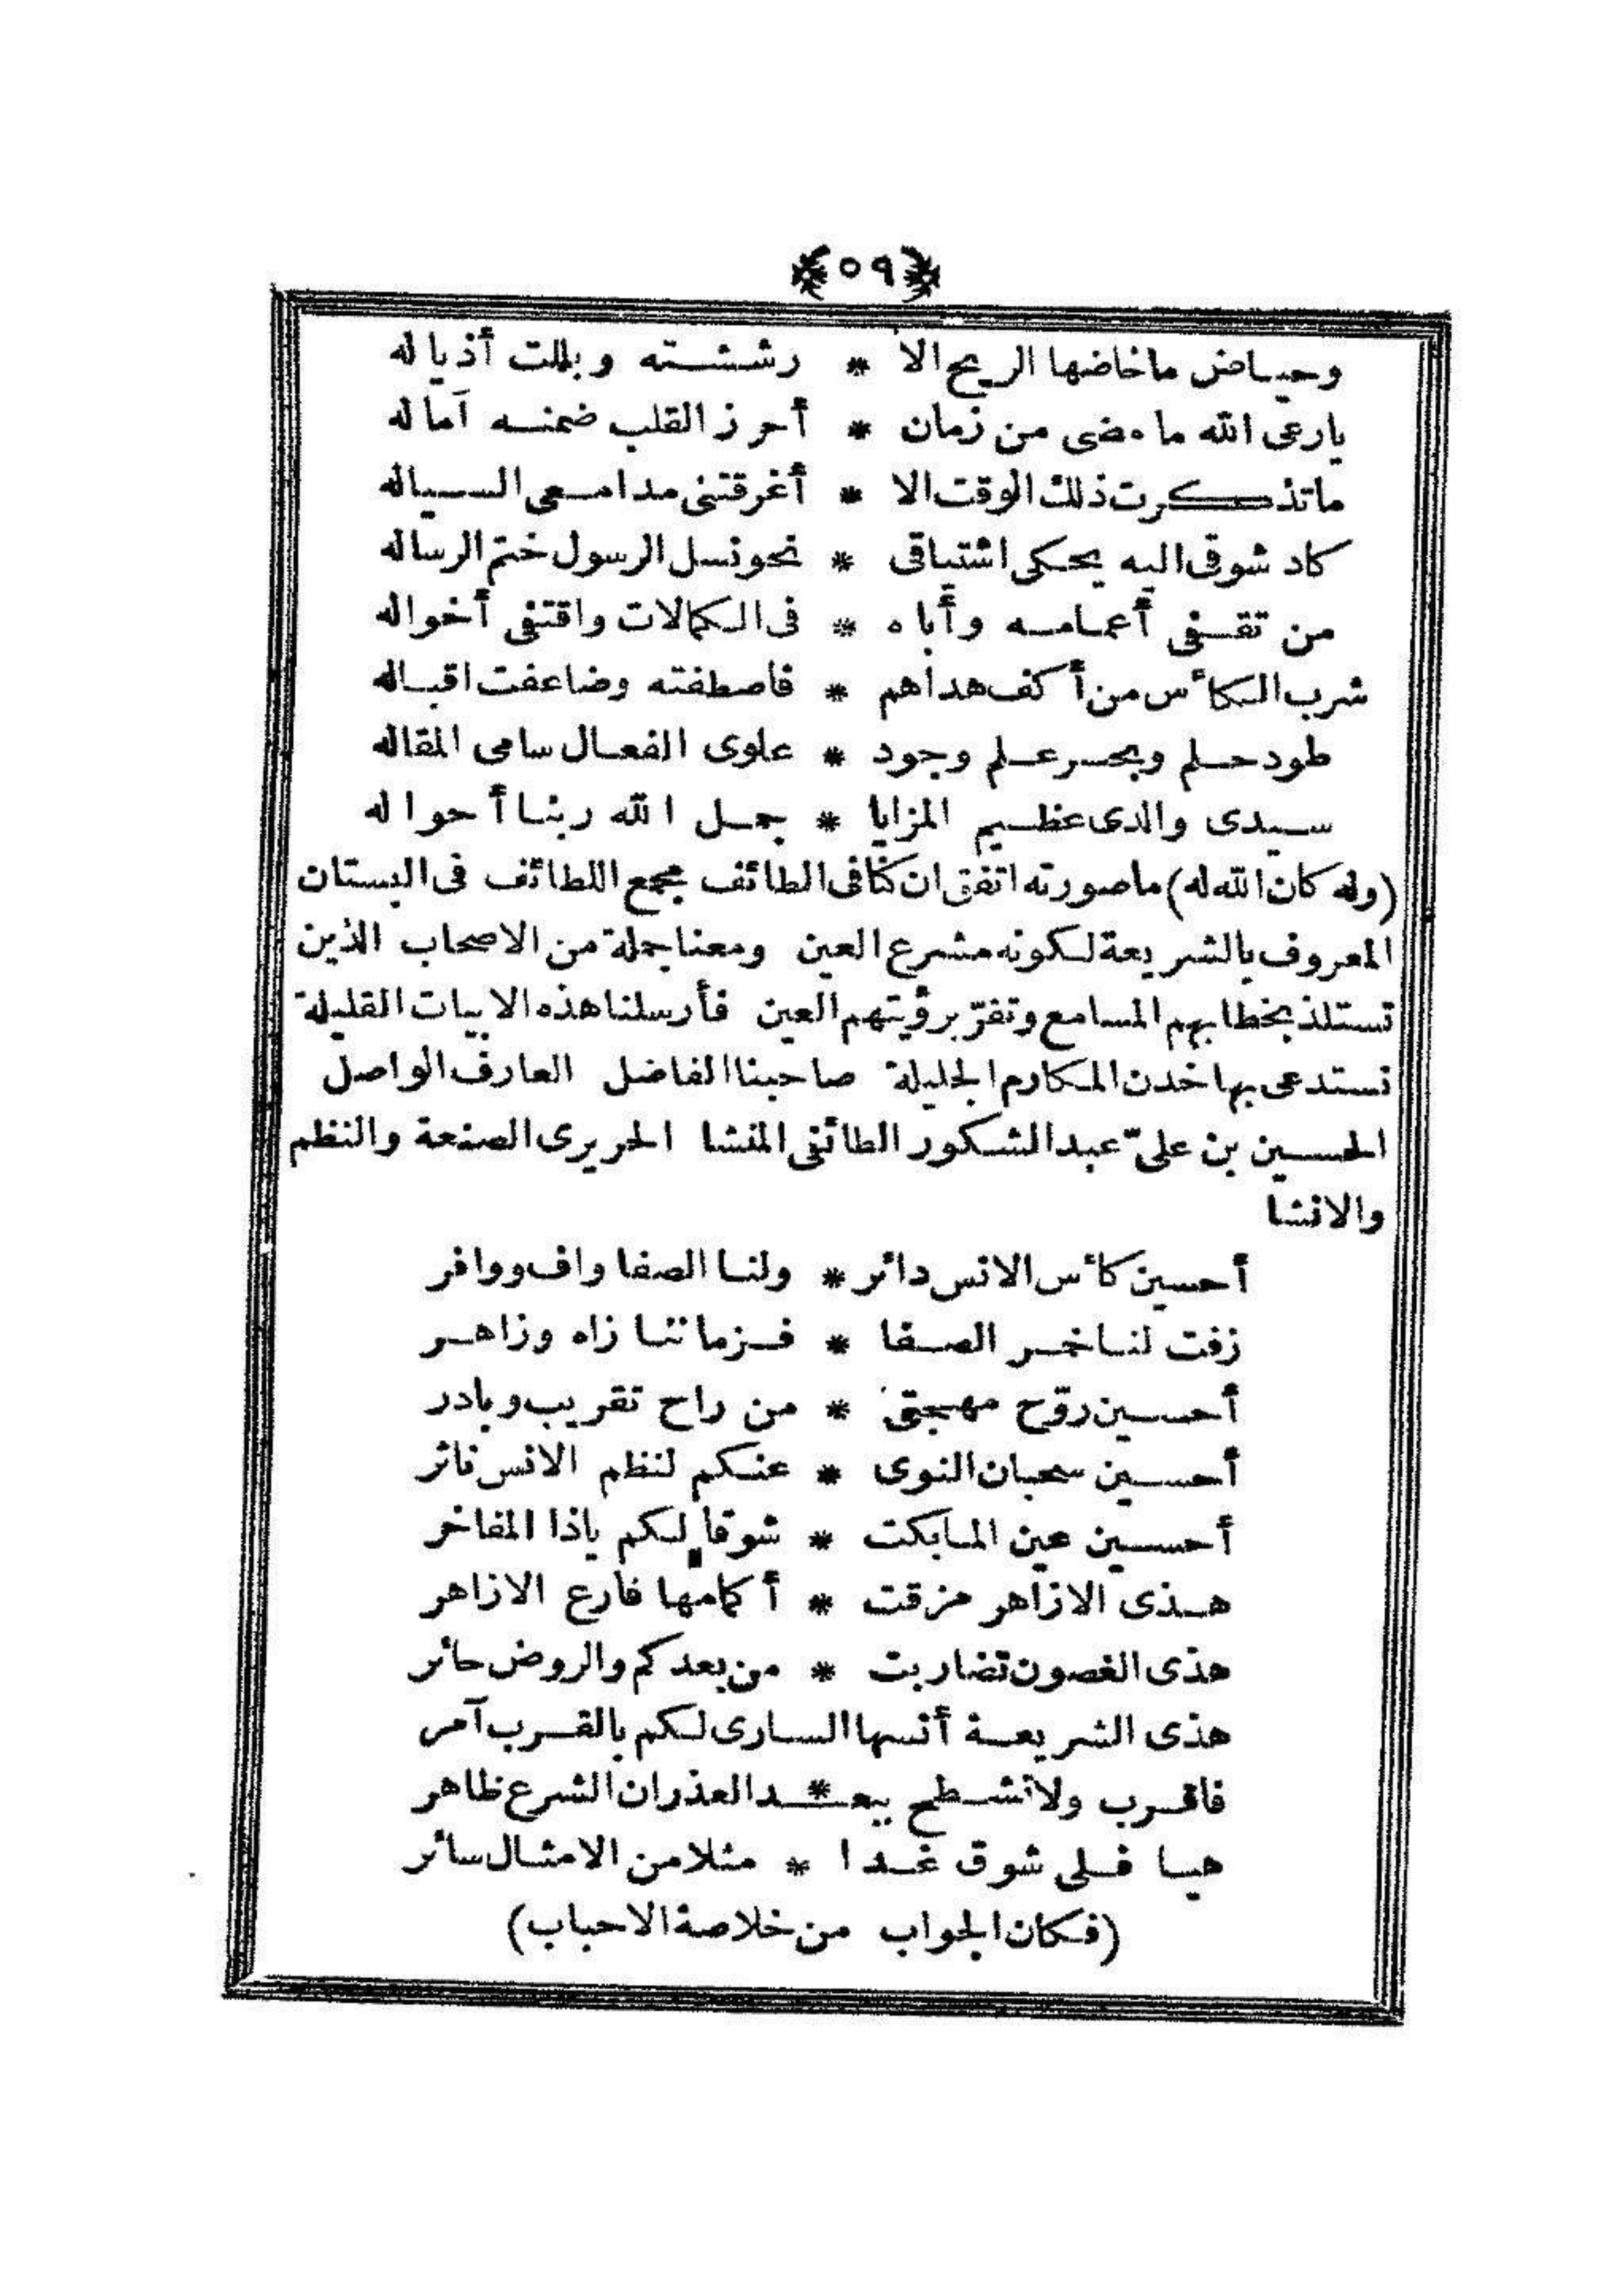 ٥٩
وحياض ماخاضها الريح الا * رششته وبللت أذياله
يارعى الله ما مضى من زمان * أحرز القلب ضمنه آماله
ماتذكرت ذلك الوقت الا * أغرقتنى مدامعى السياله
كاد شوقى اليه يحكى اشتياقى * نحو نسل الرسول ختم الرساله
من تقفى أعمامه وأباه * فى الكمالات واقتفى أخواله
شرب الكأس من أكف هداهم * فاصطفته وضاعفت اقباله
طود حلم وبحر علم وجود * علوى الفعال سامى المقاله
سيدى والدى عظيم المزايا * جمل الله ربنا أحواله
(وله كان الله له) ماصورته اتفق ان كنا فى الطائف مجمع اللطائف فى البستان
المعروف بالشريعة لكونه مشرع العين ومعنا جملة من الاصحاب الذين
تستلذ بخطابهم المسامع وتقرّ برؤيتهم العين فأرسلنا هذه الابيات القليلة
نستدعى بها خدن المكارم الجليلة صاحبنا الفاضل العارف الواصل
الحسين بن علىّ عبد الشكور الطائفى المنشا الحريرى الصنعة والنظم
والانشا
أحسين كأس الانس دائر * ولنا الصفا واف ووافر
زفت لنا خمر الصفا * فزماننا زاه وزاهر
أحسين روّح مهجتى * من راح تقريب وبادر
أحسين سحبان النوى * عنكم لنظم الانس ناثر
أحسين عين الما بكت * شوقا لكم ياذا المفاخر
هذى الازاهر مزقت * أكمامها فارع الازاهر
هذى الغصون تضاربت * من بعدكم والروض حائر
هذى الشريعة أنسها السارى لكم بالقرب آمر
فاقرب ولا تشطح ببعـ * ـد العذر ان الشرع ظاهر
هيا فلى شوق غدا * مثلا من الامثال سائر
(فكان الجواب من خلاصة الاحباب)